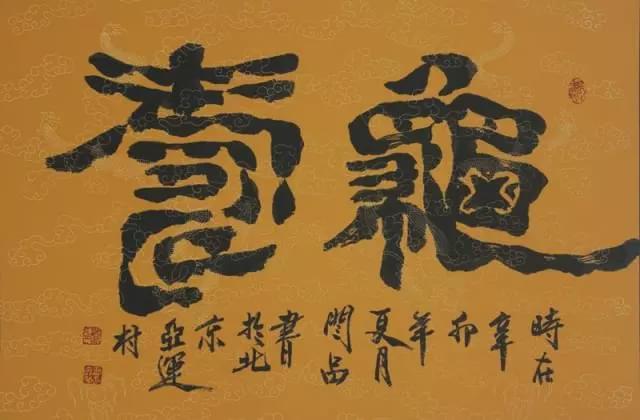 龜壽
時在
辛
卯
年
夏月
閆品
書
於北
京
亞運
村